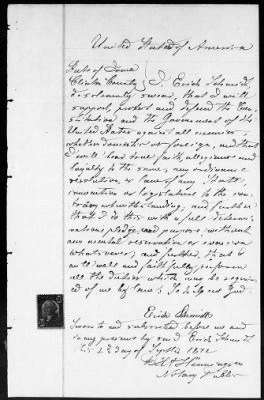 United States of America
State of Iowa
Clinton County } I, Erich Schmidt
do solemnly swear, that I will
support, protect and defend the Con
stitution and the Government of the
United States against all enemies
whether domestic or foreign, and that
I will bear true faith, allegiance and
loyalty to the same, any ordinance
resolution, or law of any State,
convention or legislature to the con
trary notwithstanding, and further
that I do this with a full determi
nation, pledge and purpose without
any mental reservation or evasion
whatsoever, and further, that I
will well and faithfully perform
all the duties which may be requir
ed of me by law; So help me God.
Erich Schmidt
Sworn to and subscribed before me and
in my presence by said Erich Schmidt
this day of Sept 1872
Notary Public